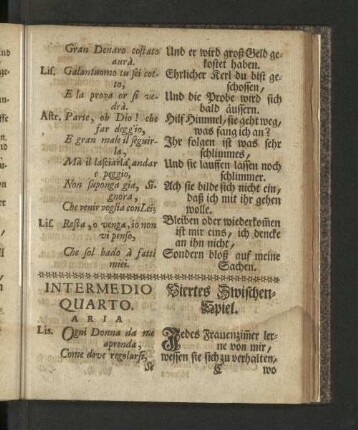 Gran Denaro costato
aurà.
Lis. Galantuomo tu sei cot-
to,
E la prova or si ve-
drà.
Astr. Parte, oh Dio! che
far deggio,
E gran male il seguir-
la,
Mà il lasciarla andar
è peggio,
Non suponga gia, Si-
gnora,
Che venir voglia con Lei;
Lis. Resta, o venga, io non
vi penso,
Che sol bado à fatti
miei.
INTERMEDIO
QUARTO.
ARIA.
Lis. Ogni Donna da me
aprenda;
Come deve regolarsi,
Se
Und er wird groß Geld ge-
kostet haben.
Ehrlicher Kerl du bist ge-
schossen,
Und die Probe wird sich
bald äussern.
Hilf Himmel, sie geht weg,
was fang ich an?
Ihr folgen ist was sehr
schlimmes,
Und sie lauffen lassen noch
schlimmer.
Ach sie bilde sich nicht ein,
daß ich mit ihr gehen
wolle.
Bleiben oder wiederkom̃en
ist mir eins, ich dencke
an ihn nicht,
Sondern bloß auf meine
Sachen.
Viertes Zwischen-
Spiel.
Jedes Frauenzim̃er ler-
ne von mir,
wessen sie sich zu verhalten,
wo